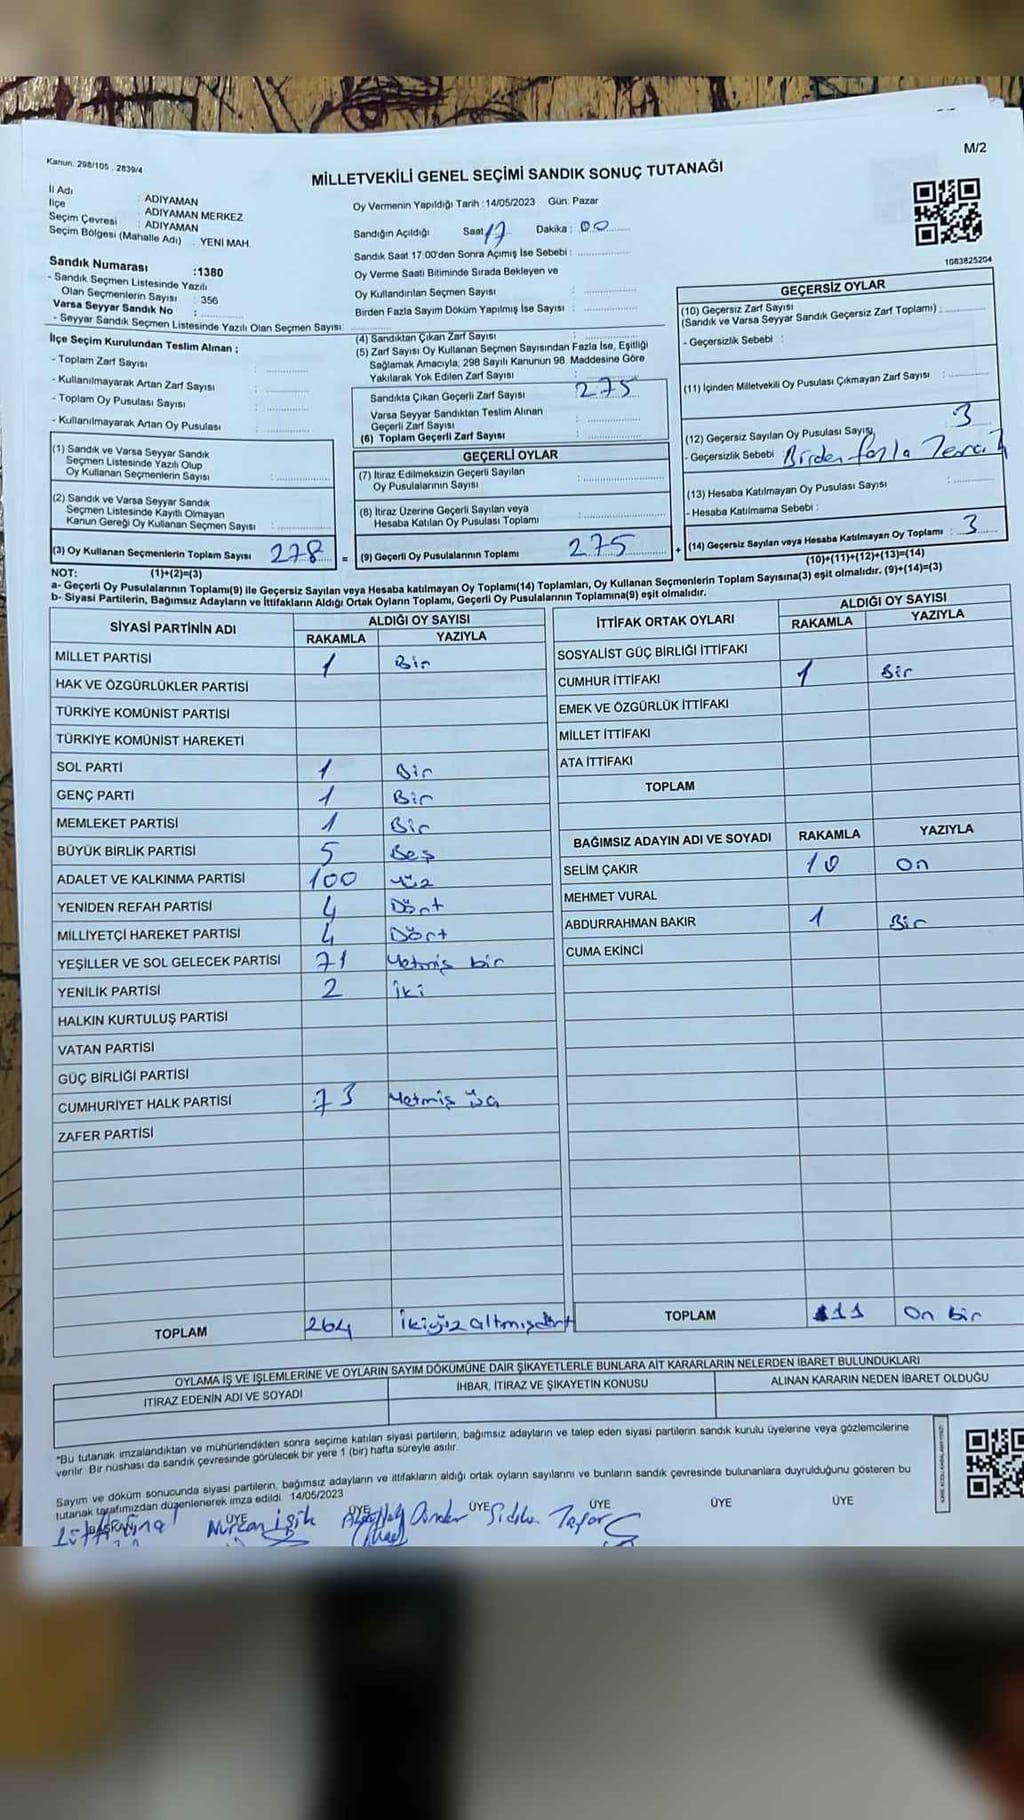 M/2
Kanun. 298/105 . 2839/4
MİLLETVEKİLİ GENEL SEÇİMİ SANDIK SONUÇ TUTANAĞI
İl Adı : ADIYAMAN
İlçe : ADIYAMAN MERKEZ
Seçim Çevresi : ADIYAMAN
Seçim Bölgesi (Mahalle Adı) . YENİ MAH
Sandık Numarası :1380
- Sandık Seçmen Listesinde Yazılı
Olan Seçmenlerin Sayısı : 356
Varsa Seyyar Sandık No :
- Seyyar Sandık Seçmen Listesinde Yazılı Olan Seçmen Sayısı:
Oy Vermenin Yapıldığı Tarih :14/05/2023 Gün: Pazar
Sandığın Açıldığı Saat 17 Dakika : 00
Sandık Saat 17:00'den Sonra Açımış İse Sebebi :
Oy Verme Saati Bitiminde Sırada Bekleyen ve
Oy Kullandırılan Seçmen Sayısı :
Birden Fazla Sayım Döküm Yapılmış İse Sayısı :
1083825204
İlçe Seçim Kurulundan Teslim Alınan ;
- Toplam Zarf Sayısı :
- Kullanılmayarak Artan Zarf Sayısı :
- Toplam Oy Pusulası Sayısı :
- Kullanılmayarak Artan Oy Pusulası :
(1) Sandık ve Varsa Seyyar Sandık
Seçmen Listesinde Yazılı Olup
Oy Kullanan Seçmenlerin Sayısı :
(2) Sandık ve Varsa Seyyar Sandık
Seçmen Listesinde Kayıtlı Olmayan
Kanun Gereği Oy Kullanan Seçmen Sayısı :
(3) Oy Kullanan Seçmenlerin Toplam Sayısı 278 =
(1)+(2)=(3)
(4) Sandıktan Çıkan Zarf Sayısı :
(5) Zarf Sayısı Oy Kullanan Seçmen Sayısından Fazla İse, Eşitliği
Sağlamak Amacıyla; 298 Sayılı Kanunun 98. Maddesine Göre
Yakılarak Yok Edilen Zarf Sayısı :
Sandıkta Çıkan Geçerli Zarf Sayısı 275
Varsa Seyyar Sandıktan Teslim Alınan
Geçerli Zarf Sayısı :
(6) Toplam Geçerli Zarf Sayısı :
GEÇERLİ OYLAR
(7) İtiraz Edilmeksizin Geçerli Sayılan
Oy Pusulalarının Sayısı :
(8) İtiraz Üzerine Geçerli Sayılan veya
Hesaba Katılan Oy Pusulası Toplamı :
(9) Geçerli Oy Pusulalarının Toplamı 275 +
GEÇERSİZ OYLAR
(10) Geçersiz Zarf Sayısı
(Sandık ve Varsa Seyyar Sandık Geçersiz Zarf Toplamı) :
- Geçersizlik Sebebi :
(11) İçinden Milletvekili Oy Pusulası Çıkmayan Zarf Sayısı :
(12) Geçersiz Sayılan Oy Pusulası Sayısı 3
- Geçersizlik Sebebi Birden fazla
(13) Hesaba Katılmayan Oy Pusulası Sayısı :
- Hesaba Katılmama Sebebi :
(14) Geçersiz Sayılan veya Hesaba Katılmayan Oy Toplamı : 3
(10)+(11)+(12)+(13)=(14)
NOT:
a- Geçerli Oy Pusulalarının Toplamı(9) ile Geçersiz Sayılan veya Hesaba katılmayan Oy Toplamı(14) Toplamları, Oy Kullanan Seçmenlerin Toplam Sayısına(3) eşit olmalıdır. (9)+(14)=(3)
b- Siyasi Partilerin, Bağımsız Adayların ve İttifakların Aldığı Ortak Oyların Toplamı, Geçerli Oy Pusulalarının Toplamına(9) eşit olmalıdır.
SİYASİ PARTİNİN ADI ALDIĞI OY SAYISI
RAKAMLA YAZIYLA
MİLLET PARTİSİ 1 Bir
HAK VE ÖZGÜRLÜKLER PARTİSİ
TÜRKİYE KOMÜNİST PARTİSİ
TÜRKİYE KOMÜNİST HAREKETİ
SOL PARTİ 1 Bir
GENÇ PARTİ 1 Bir
MEMLEKET PARTİSİ 1 Bir
BÜYÜK BİRLİK PARTİSİ 5 Beş
ADALET VE KALKINMA PARTİSİ 100 Yüz
YENİDEN REFAH PARTİSİ 4 Dört
MİLLİYETÇİ HAREKET PARTİSİ 4 Dört
YEŞİLLER VE SOL GELECEK PARTİSİ 71 Yetmiş bir
YENİLİK PARTİSİ 2 İki
HALKIN KURTULUŞ PARTİSİ
VATAN PARTİSİ
GÜÇ BİRLİĞİ PARTİSİ
CUMHURİYET HALK PARTİSİ 73 Yetmiş üç
ZAFER PARTİSİ
TOPLAM 264 İkiyüz altmışdört
İTTİFAK ORTAK OYLARI ALDIĞI OY SAYISI
RAKAMLA YAZIYLA
SOSYALİST GÜÇ BİRLİĞİ İTTİFAKI
CUMHUR İTTİFAKI 1 Bir
EMEK VE ÖZGÜRLÜK İTTİFAKI
MİLLET İTTİFAKI
ATA İTTİFAKI
TOPLAM
BAĞIMSIZ ADAYIN ADI VE SOYADI RAKAMLA YAZIYLA
SELİM ÇAKIR 10 On
MEHMET VURAL
ABDURRAHMAN BAKIR 1 Bir
CUMA EKİNCİ
TOPLAM 11 On bir
OYLAMA İŞ VE İŞLEMLERİNE VE OYLARIN SAYIM DÖKÜMÜNE DAİR ŞİKAYETLERLE BUNLARA AİT KARARLARIN NELERDEN İBARET BULUNDUKLARI
İTİRAZ EDENİN ADI VE SOYADI İHBAR, İTİRAZ VE ŞİKAYETİN KONUSU ALINAN KARARIN NEDEN İBARET OLDUĞU
*Bu tutanak imzalandıktan ve mühürlendikten sonra seçime katılan siyasi partilerin, bağımsız adayların ve talep eden siyasi partilerin sandık kurulu üyelerine veya gözlemcilerine
verilir. Bir nüshası da sandık çevresinde görülecek bir yere 1 (bir) hafta süreyle asılır.
Sayım ve döküm sonucunda siyasi partilerin, bağımsız adayların ve ittifakların aldığı ortak oyların sayılarını ve bunların sandık çevresinde bulunanlara duyrulduğunu gösteren bu
tutanak tarafımızdan düzenlenerek imza edildi. 14/05/2023
BAŞKAN ÜYE ÜYE ÜYE ÜYE ÜYE ÜYE
Nurcan Işık